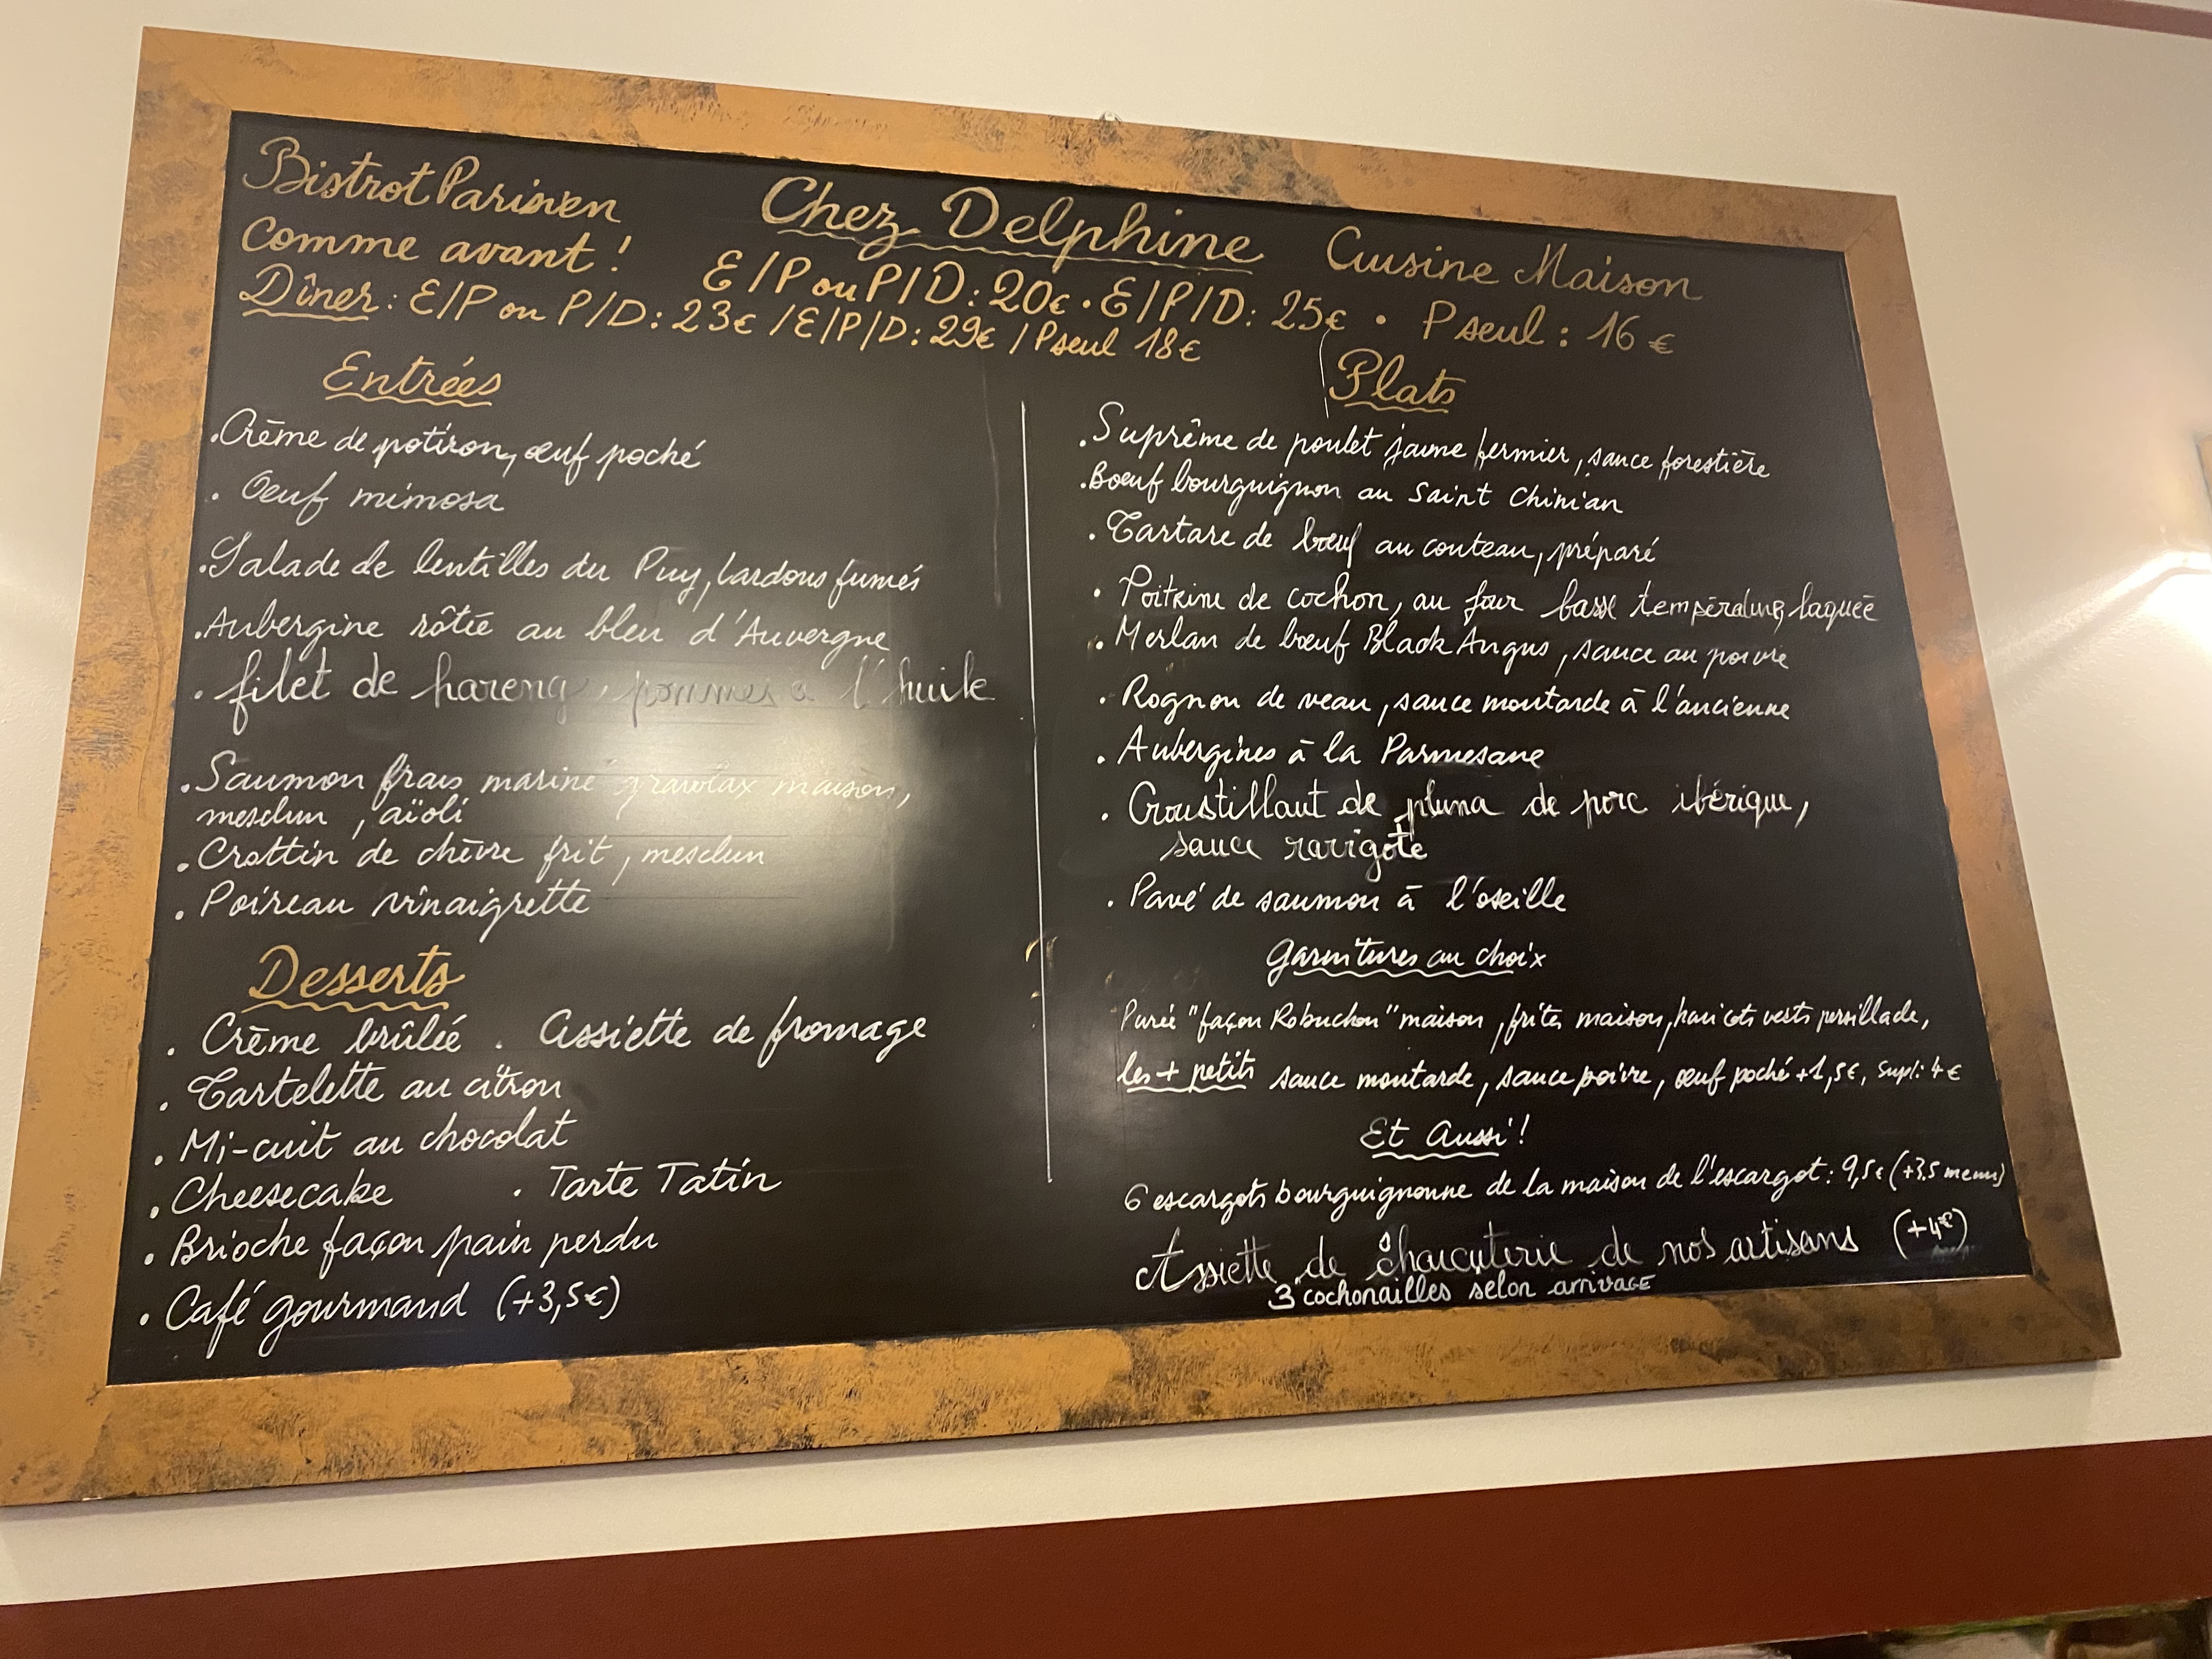 Bistrot Parisien
Comme avant !
Chez Delphine
Cuisine Maison
E/P ou P/D : 20€ · E/P/D : 25€ · P seul : 16 €
Dîner : E/P ou P/D : 23€ / E/P/D : 29€ / P seul 18€
Entrées
. Crème de potiron, œuf poché
. Oeuf mimosa
. Salade de lentilles du Puy, lardons fumés
. Aubergine rôtie au bleu d'Auvergne
. filet de hareng, pommes à l'huile
. Saumon frais mariné gravlax maison,
mesclun, aïoli
. Crottin de chèvre frit, mesclun
. Poireau vinaigrette
Desserts
. Crème brûlée . Assiette de fromage
. Tartelette au citron
. Mi-cuit au chocolat
. Cheesecake . Tarte Tatin
. Brioche façon pain perdu
. Café gourmand (+3,5€)
Plats
. Suprême de poulet jaune fermier, sauce forestière
. Bœuf bourguignon au Saint Chinian
. Tartare de bœuf au couteau, préparé
. Poitrine de cochon, au four basse température, laquée
. Merlan de bœuf Black Angus, sauce au poivre
. Rognon de veau, sauce moutarde à l'ancienne
. Aubergines à la Parmesane
. Croustillant de pluma de porc ibérique,
sauce ravigote
. Pavé de saumon à l'oseille
Garnitures au choix
Purée "façon Robuchon" maison, frites maison, haricots verts persillade,
les + petits sauce moutarde, sauce poivre, œuf poché +1,5€, supl: 4€
Et Aussi !
6 escargots bourguignonne de la maison de l'escargot : 9,5€ (+3,5 menu)
Assiette de charcuterie de nos artisans (+4€)
3 cochonailles selon arrivage